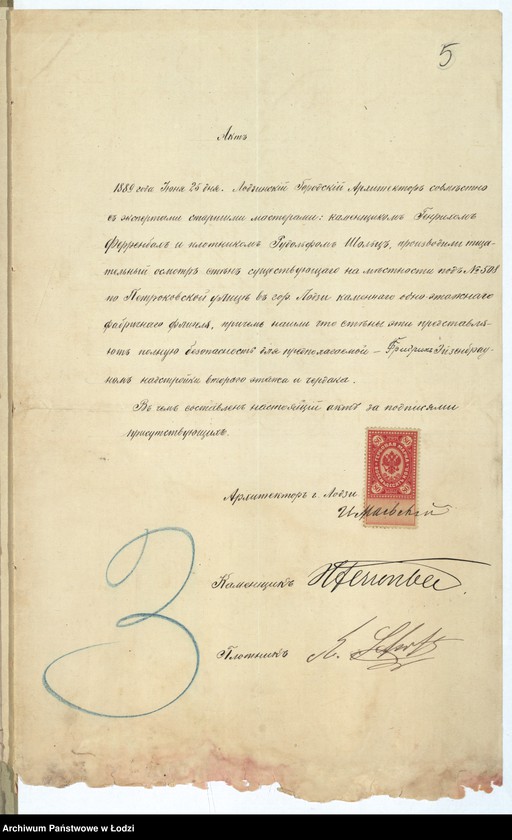 5
Актъ
1889 года Іюня 25 дня. Лодзинскій Городскій Архитекторъ совмѣстно
съ экспертами старшими мастерами: каменщикомъ Генрихомъ
Ферренбах и плотникомъ Рудольфомъ Шольцъ, производили тща-
тельный осмотръ стѣнъ существующаго на мѣстности подъ № 508
по Петроковской улицѣ въ гор. Лодзи каменнаго одно-этажнаго
фабричнаго флигеля, причемъ нашли что стѣны эти представля-
ютъ полную безопасность для предполагаемой – Гейнбрау-
номъ надстройки втораго этажа и чердака.
Въ чемъ составленъ настоящій актъ за подписями
присутствующихъ.
Архитекторъ г. Лодзи
Каменщикъ
Плотникъ
3
Archiwum Państwowe w Łodzi